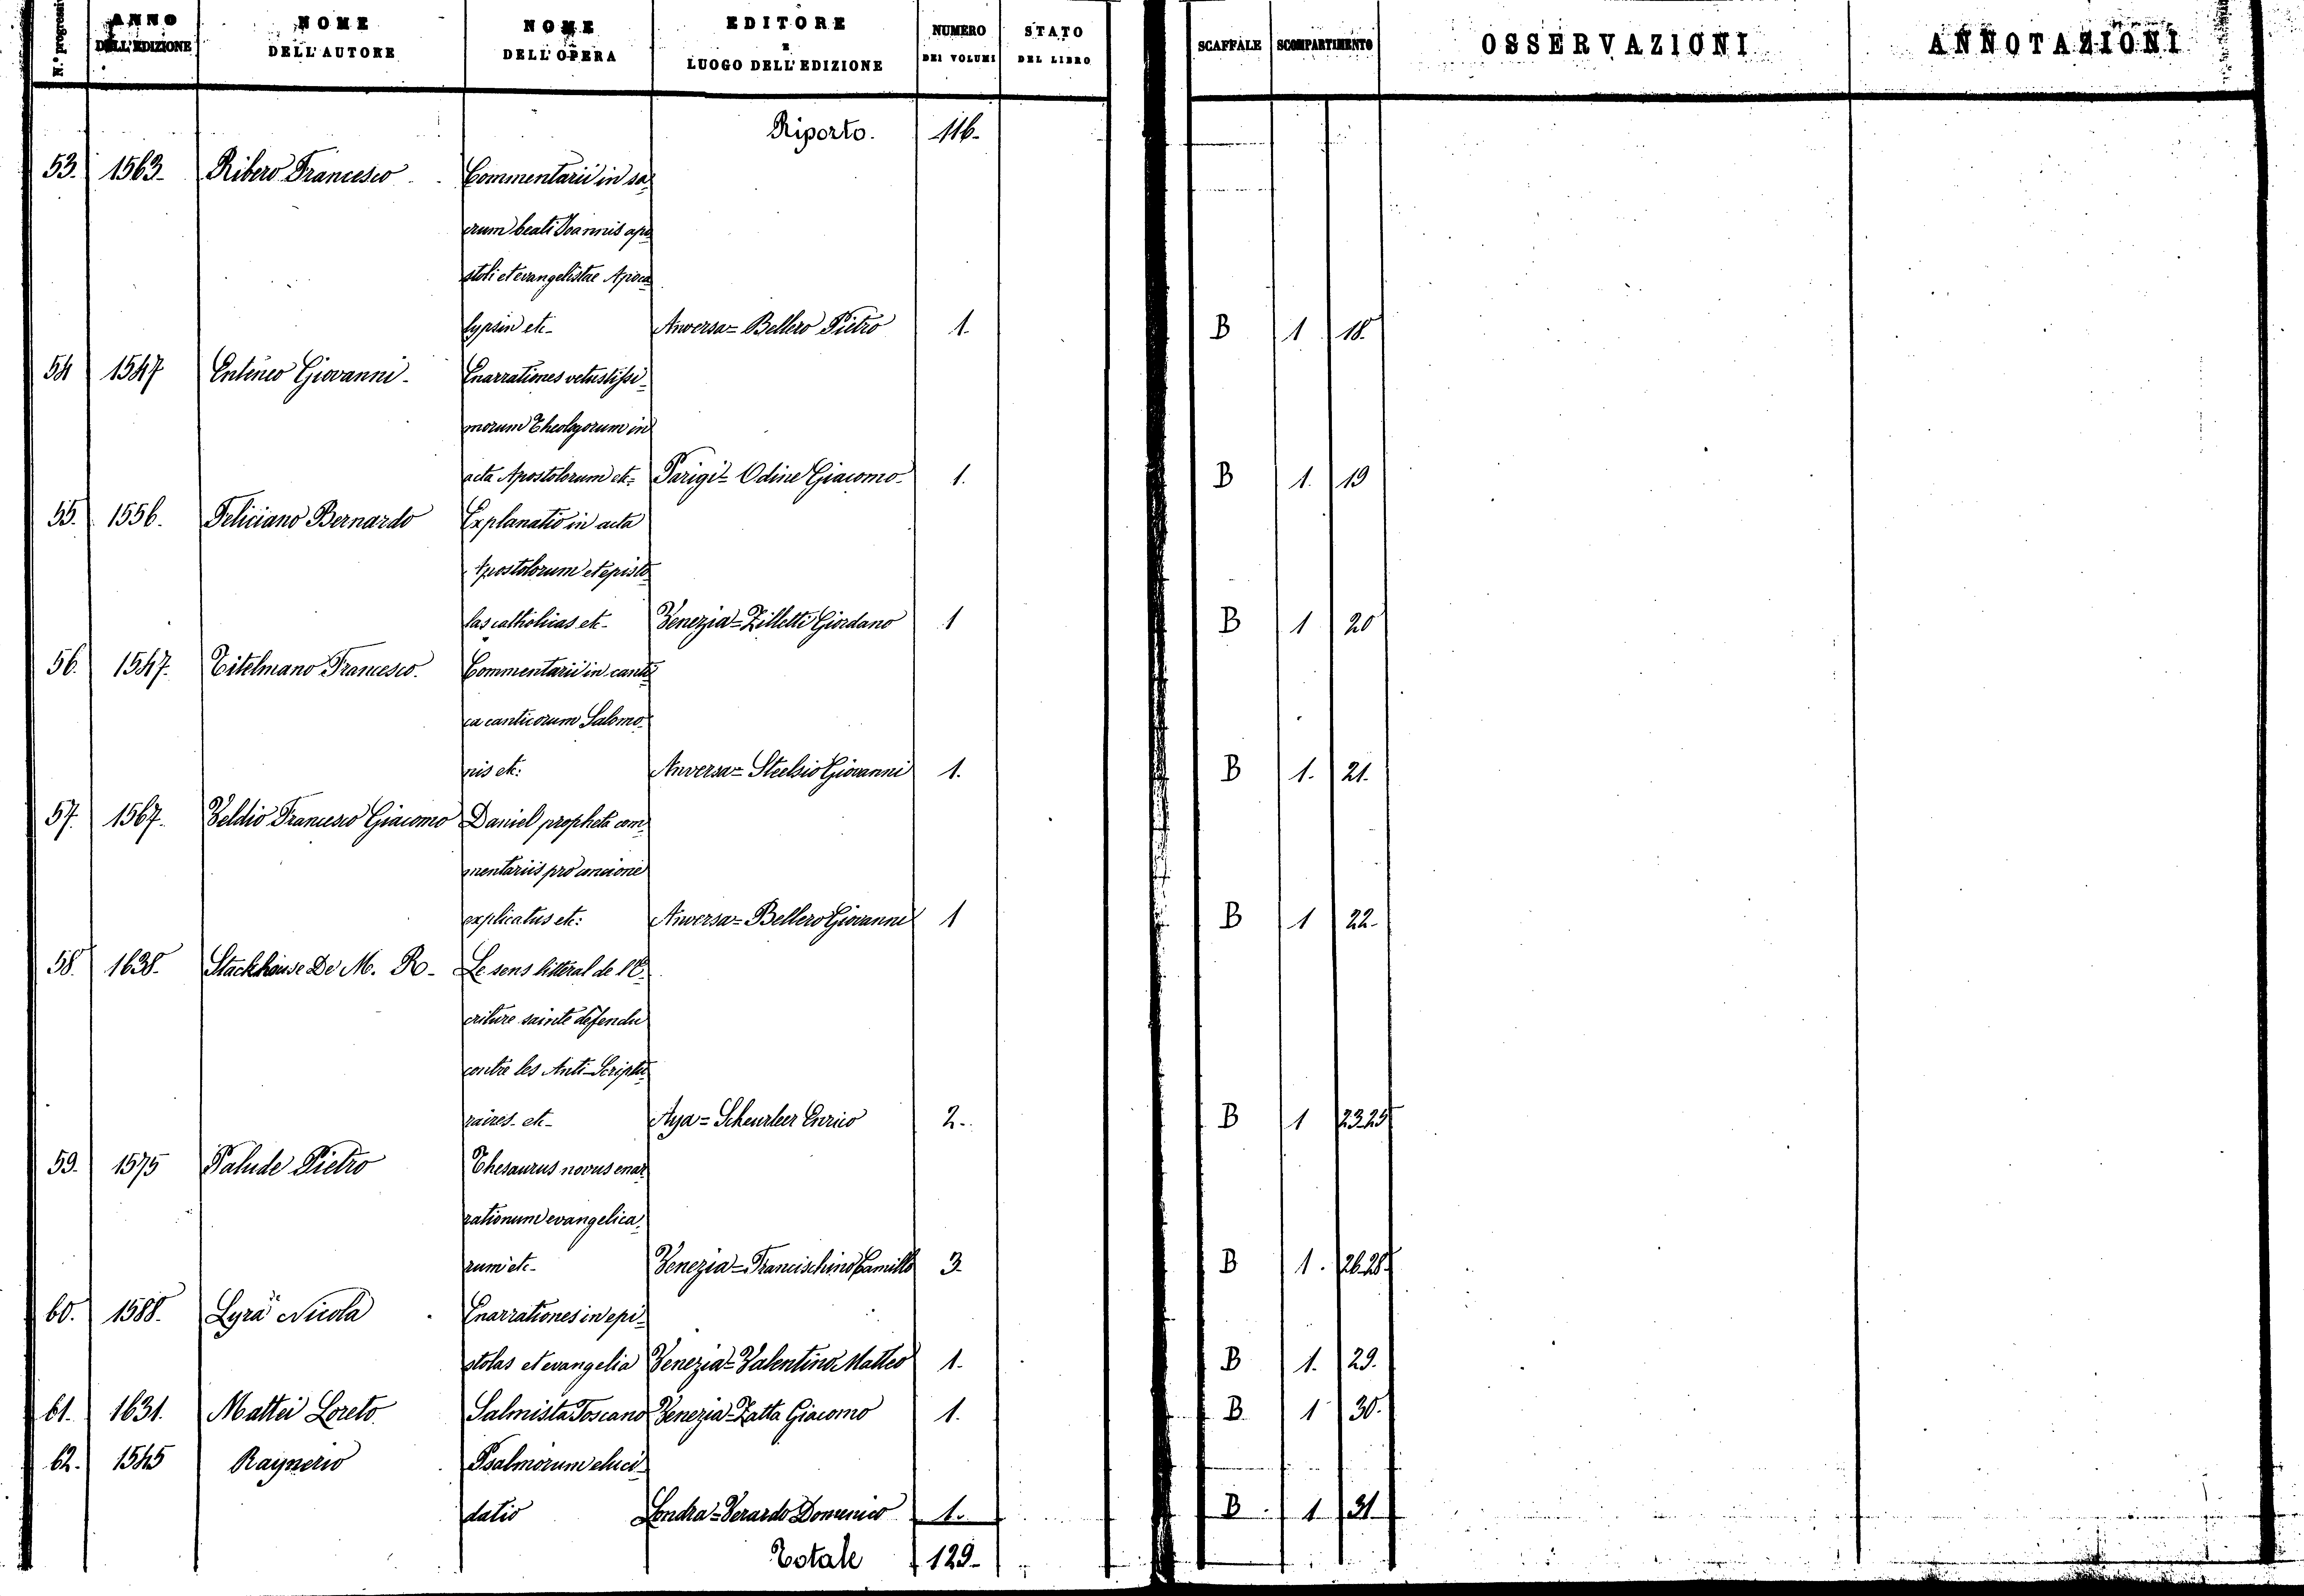 N.° progressi
ANNO DELL'EDIZIONE
NOME DELL'AUTORE
NOME DELL'OPERA
EDITORE E LUOGO DELL'EDIZIONE
NUMERO DEI VOLUMI
STATO DEL LIBRO
SCAFFALE
SCOMPARTIMENTO
OSSERVAZIONI
ANNOTAZIONI
Riporto. 116-
53. 1563- Ribero Francesco Commentarii in sa-
crum beati Joannis apo
stoli et evangelistae Apoca
lypsin etc- Anversa= Bellero Pietro 1. B 1 18.
54 1547 Enteneo Giovanni- Enarrationes vetustissi-
morum Theologorum in
acta Apostolorum etc= Parigi= Odine Giacomo- 1. B 1. 19
55. 1556. Feliciano Bernardo Explanatio in acta
Apostolorum et episto
las catholicas etc- Venezia= Zilletti Giordano 1 B 1 20
56. 1547. Titelmano Francesco. Commentarii in canti
ca canticorum Salomo-
nis etc: Anversa= Steelsio Giovanni 1. B 1. 21.
57. 1567. Veldio Francesco Giacomo Daniel propheta com-
mentariis pro concione
explicatus etc: Anversa= Bellero Giovanni 1 B 1 22-
58. 1638. Stackhouse De M. R- Le sens littéral de l'E-
criture sainte defendu
contre les Anti-Scriptu
raires- etc- Aya= Scheurleer Enrico 2- B 1 23.25
59. 1575 Palude Pietro Thesaurus novus enar
rationum evangelica-
rum etc- Venezia= Francischino Camillo 3- B 1. 26.28.
60. 1588. Lyra Nicola Enarrationes in epi-
stolas et evangelia Venezia= Valentino Matteo 1- B 1. 29.
61. 1631. Mattei Loreto. Salmista Toscano Venezia= Zatta Giacomo 1. B 1 30.
62. 1545 Raynerio Psalmorum eluci-
datio Londra= Verardo Domenico 1. B 1 31
Totale 129-